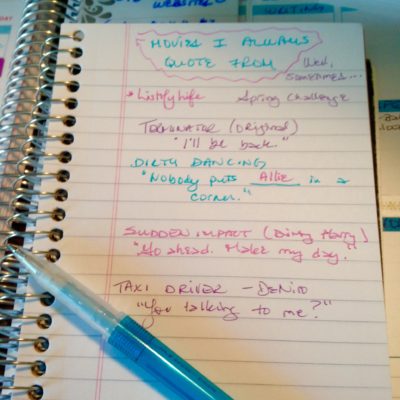 WRITING
WEBSITE
MOVIES I ALWAYS
QUOTE FROM
Well,
sometimes...
*Listify Life Spring Challenge
TERMINATOR (Original)
"I'll be back."
DIRTY DANCING
"Nobody puts Allie in a
corner."
SUDDEN IMPACT (Dirty Harry)
"Go ahead. Make my day."
TAXI DRIVER - DENIRO
"You talking to me?"